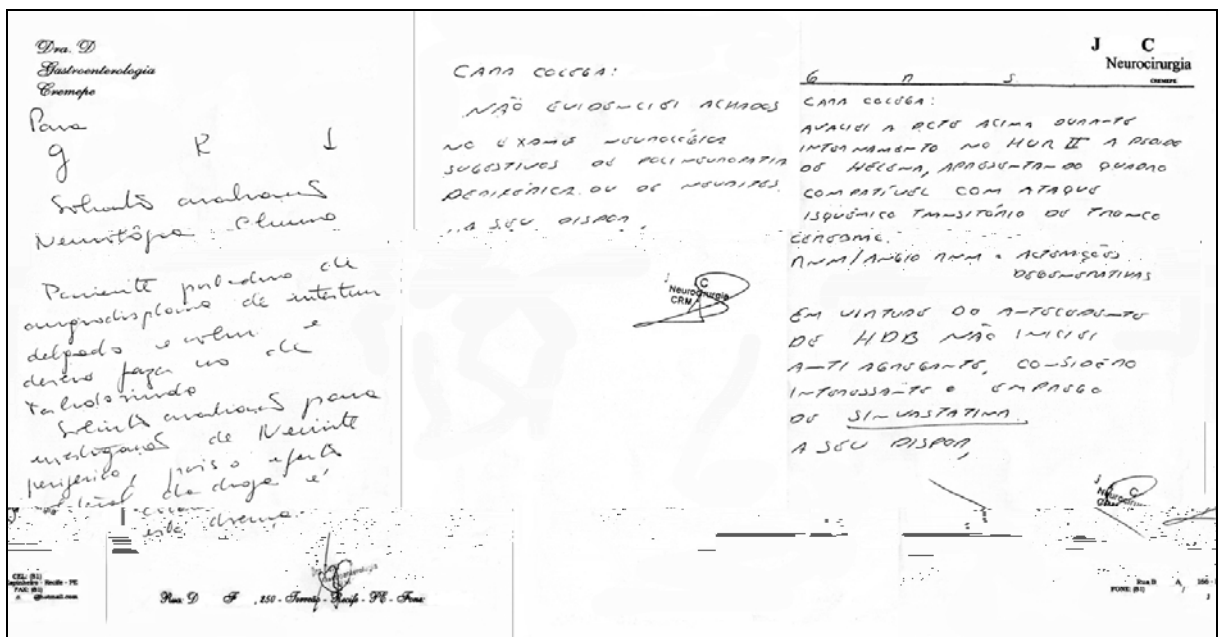 Dra. D
Gastroenterologia
Cremepe
Para
g R I
Solicito avaliação
Paciente portadora de
angiodisplasia de intestino
delgado e colon e
deverá fazer uso de
talidomida
Solicito avaliação para
de Neurite
periférica, pois o efeito
da droga é
esta doença
CEL: (81)
Recife - PE
FAX: (81)
@hotmail.com
Rua D F , 250 - Torreão - Recife - PE - Fone:
CARA COLEGA:
NÃO EVIDENCIEI ACHADOS
NO EXAME NEUROLÓGICO
SUGESTIVOS DE POLINEUROPATIA
PERIFÉRICA OU DE NEURITES.
A SEU DISPOR,
J C
Neurocirurgia
CRM
J C
Neurocirurgia
CREMEPE
G R S
CARA COLEGA:
AVALIEI A PCTE ACIMA DURANTE
INTERNAMENTO NO HUR II A PEDIDO
DE HELENA, APRESENTANDO QUADRO
COMPATÍVEL COM ATAQUE
ISQUÊMICO TRANSITÓRIO DE TRONCO
CEREBRAL.
RNM/ANGIO RNM = ALTERAÇÕES
DEGENERATIVAS
EM VIRTUDE DO ANTECEDENTE
DE HDB NÃO INICIEI
ANTIAGREGANTE, CONSIDERO
INTERESSANTE O EMPREGO
DE SINVASTATINA.
A SEU DISPOR,
J C
Neurocirur
Rua D A, 160 -
FONE: (81) /